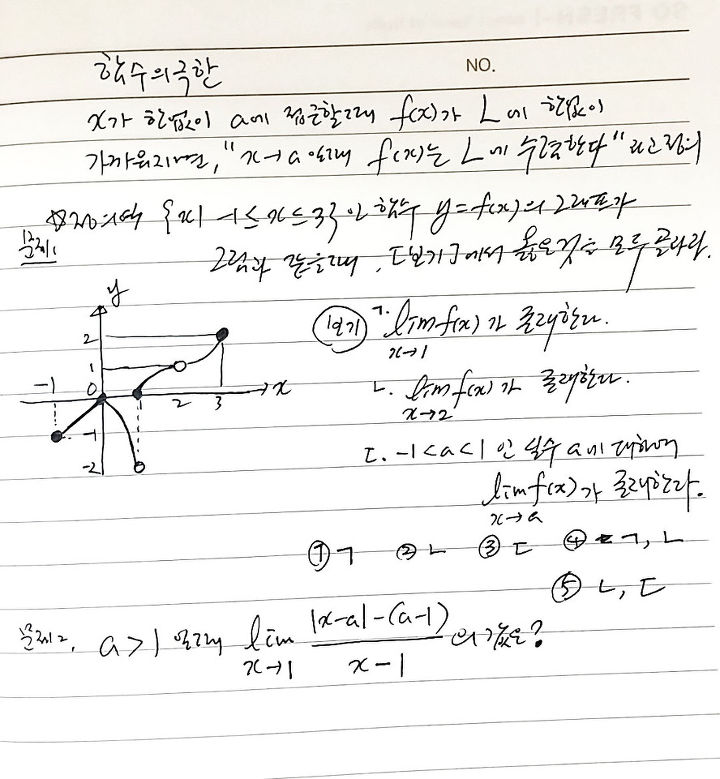 함수의극한
NO.
x가 한없이 a에 접근할때 f(x)가 L에 한없이
가까워지면, "x→a 일때 f(x)는 L에 수렴한다" 라고정의
☆정의역 {x| -1≤x≤3}인 함수 y=f(x)의 그래프가
문제1
그림과 같을때, [보기]에서 옳은것을 모두 골라라.
y
2
1
-1 0 1 2 3 x
-1
-2
보기 ㄱ. lim f(x)가 존재한다.
x→1
ㄴ. lim f(x)가 존재한다.
x→2
ㄷ. -1<a<1 인 실수 a에 대하여
lim f(x)가 존재한다.
x→a
① ㄱ ② ㄴ ③ ㄷ ④ ㄱ, ㄴ
⑤ ㄴ, ㄷ
문제2. a>1 일때 lim |x-a|-(a-1) 의 값은?
x→1 x-1